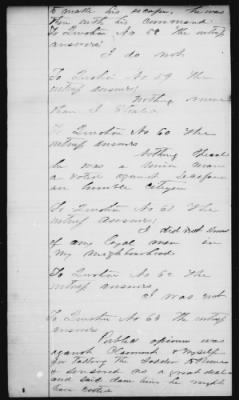 to make his escape, he was
then with his command
To Question No 58 the
answers:
I do not
To Question No 59 the
witness answers;
Nothing more
than I stated
To Question No 60 the
witness answers
Nothing
he was a Union man
& voted against
an humble citizen
To Question No 61 the
witness answers;
I did not know
of any loyal man in
my neighborhood
To Question No 62 the
witness answers
I was not
To Question No 63 the witness
answers
Public opinion was
against Claimant & myself
for taking the
& censured us a great deal
and said
have